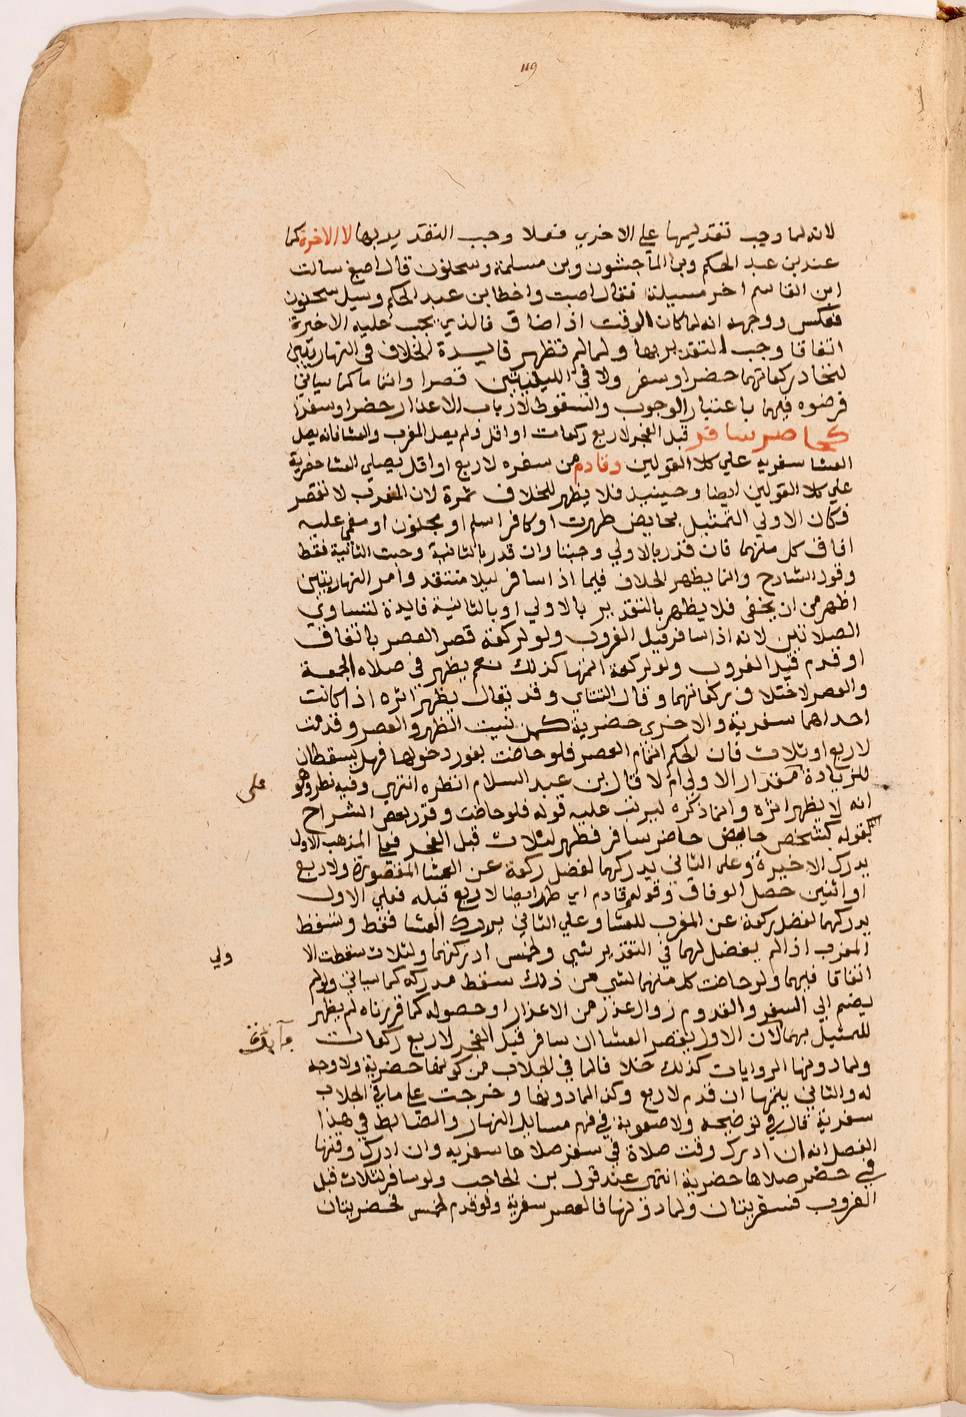 119
لانه لما وجب تقديمها علي الاخري فعلا وجب التقدير بها لا الاخرة كما
عند بن عبد الحكم وبن الماجشون وبن مسلمة وسحنون قال اصبغ سالت
ابن القاسم اخر مسيلة فقال اصبت واخطا بن عبد الحكم وسيل سحنون
فعكس ووجهه انه لما كان الوقت اذا ضاق فالذي يجب عليه الاخيرة
اتفاقا وجب التقدير بها ولما لم تظهر فايدة الخلاف في النهاريتين
لاتحاد ركعاتهما حضرا وسفر ولا في الليليتين قصرا وانما كما سياتي
فرضوه فيهما باعتبار الوجوب والسقوط لارباب الاعذار حضرا وسفرا
كحاضر سافر قبل الفجر لاربع ركعات او اقل ولم يصل المغرب والعشا فانه يصل
العشا سفرية علي كلا القولين وقادم من سفره لاربع او اقل يصلي العشا حضرية
علي كلا القولين ايضا وحينيذ فلا يظهر للخلاف ثمرة لان المغرب لا تقصر
فكان الاولي التمثيل بحايض طهرت او كافر اسلم او مجنون او مغمي عليه
افاق كل منهما فان قدر بالاولي وجبتا وان قدر بالثانية وجبت الثانية فقط
وقول الشارح وانما يظهر الخلاف فيما اذا سافر ليلا منتقد وامر النهاريتين
اظهر من ان يخفي فلا يظهر بالتقدير بالاولي او بالثانية فايدة لتساوي
الصلاتين لانه اذا سافر قبل الغروب ولو لركعة قصر العصر باتفاق
او قدم قبل الغروب ولو لركعة اتمها كذلك نعم يظهر في صلاه الجمعة
والعصر لاختلاف ركعاتهما وقال التتاي وقد يقال يظهر اثره اذا كانت
احداهما سفرية والاخري حضرية كمن نسيت الظهر والعصر وقدمت
لاربع او ثلاث فان الحكم اتمام العصر فلو حاضت بفور دخولها فهل يسقطان
للزيادة مقدار الاولي ام لا قال بن عبد السلام انظره انتهي وفيه نظر وهو
انه لا يظهر اثره وانما ذكره ليرتب عليه قوله فلو حاضت وقرر بعض الشراح
بقوله كشخص حايض حاضر سافر فطهر لثلاث قبل الفجر فعلي المذهب الاول
يدرك الاخيرة وعلي الثاني يدركهما لفضل ركعة عن العشا المقصورة ولاربع
او اثنين حصل الوفاق وقوله قادم اي طهر ايضا لاربع قبله فعلي الاول
يدركهما لفضل ركعة عن المغرب للعشا وعلي الثاني يدرك العشا فقط وتسقط
المغرب اذا لم يفضل لهما في التقدير شي ولخمس ادركتهما ولثلاث سقطت الا
ولي
اتفاقا فيهما ولو حاضت كل منهما لشي من ذلك سقط مدركه كما سياتي ولو لم
يضم الي السفر والقدوم زوال عذر من الاعذار او حصوله كما قررناه لم يظهر
للتمثيل بهما لان الاول يقصر العشا ان سافر قبل الفجر لاربع ركعات
ولما دونها الروايات كذلك خلافا لما في الجلاب من كونها حضرية ولا وجه
له والثاني يتمها ان قدم لاربع وكذا لما دونها وخرجت علي ما في الجلاب
سفرية قال في توضيحه ولا صعوبة في فهم مسايل النهار والضابط في هذا
الفصل انه ان ادرك وقت صلاة في سفر صلاها سفرية وان ادرك وقتها
في حضر صلاها حضرية انتهي عند قول بن الحاجب ولو سافر لثلاث قبل
الغروب فسفريتان ولما دونها فالعصر سفرية ولو قدم لخمس فحضريتان